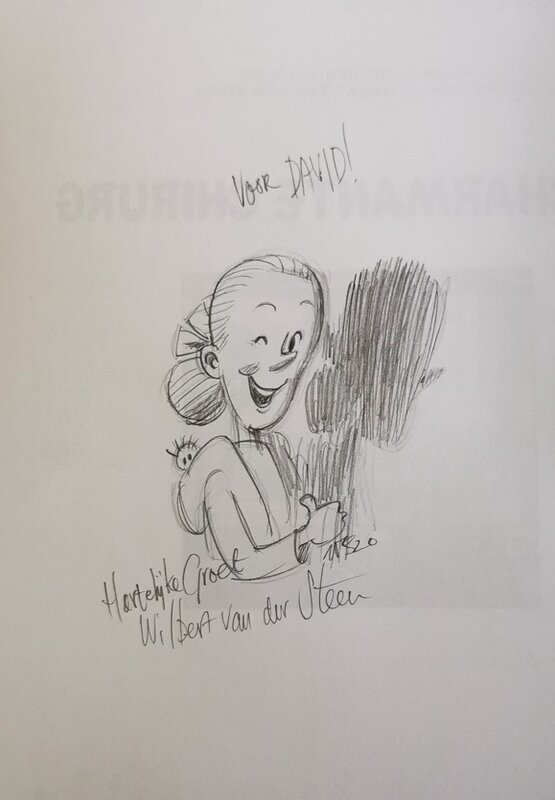 VOOR DAVID!
Hartelijke Groet
Wilbert van der Steen